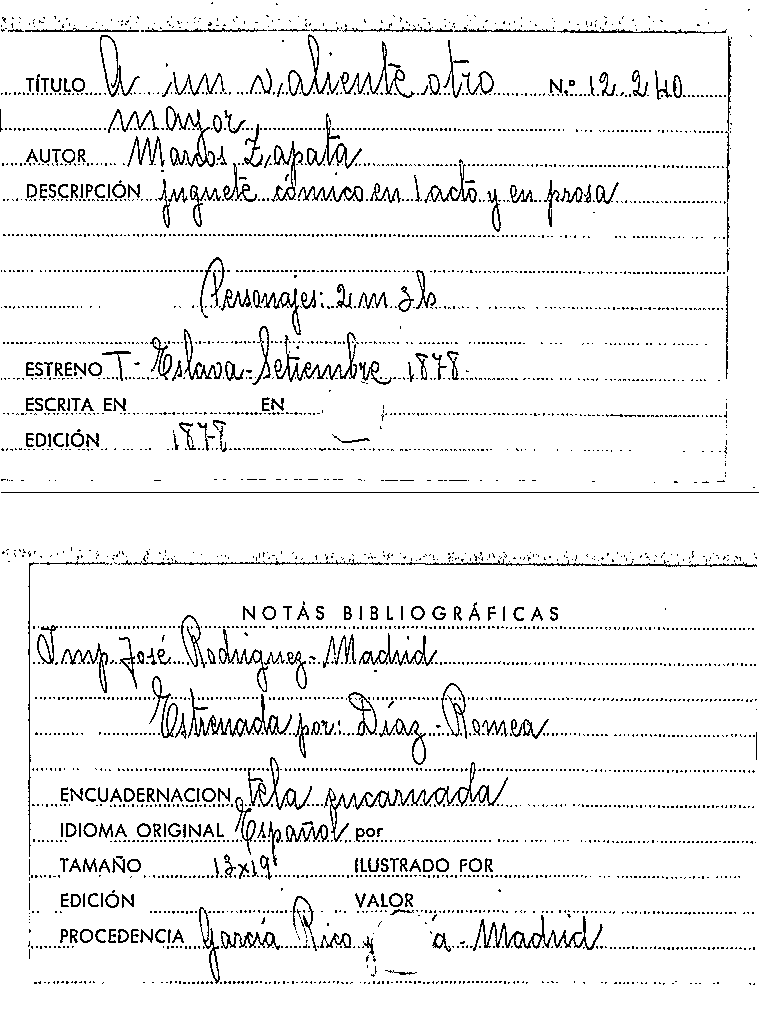 TÍTULO A un valiente otro Nº 12.240
mayor
AUTOR Marcos Zapata
DESCRIPCIÓN juguete cómico en 1 acto y en prosa
Personajes: 2 m 3 h
ESTRENO T- Eslava-Setiembre 1878-
ESCRITA EN EN
EDICIÓN 1878
NOTAS BIBLIOGRÁFICAS
Imp. José Rodriguez-Madrid
Estrenada por: Díaz-Romea
ENCUADERNACION tela encarnada
IDIOMA ORIGINAL Español por
TAMAÑO 13x19 ILUSTRADO FOR
EDICIÓN VALOR
PROCEDENCIA García Rico y a-Madrid